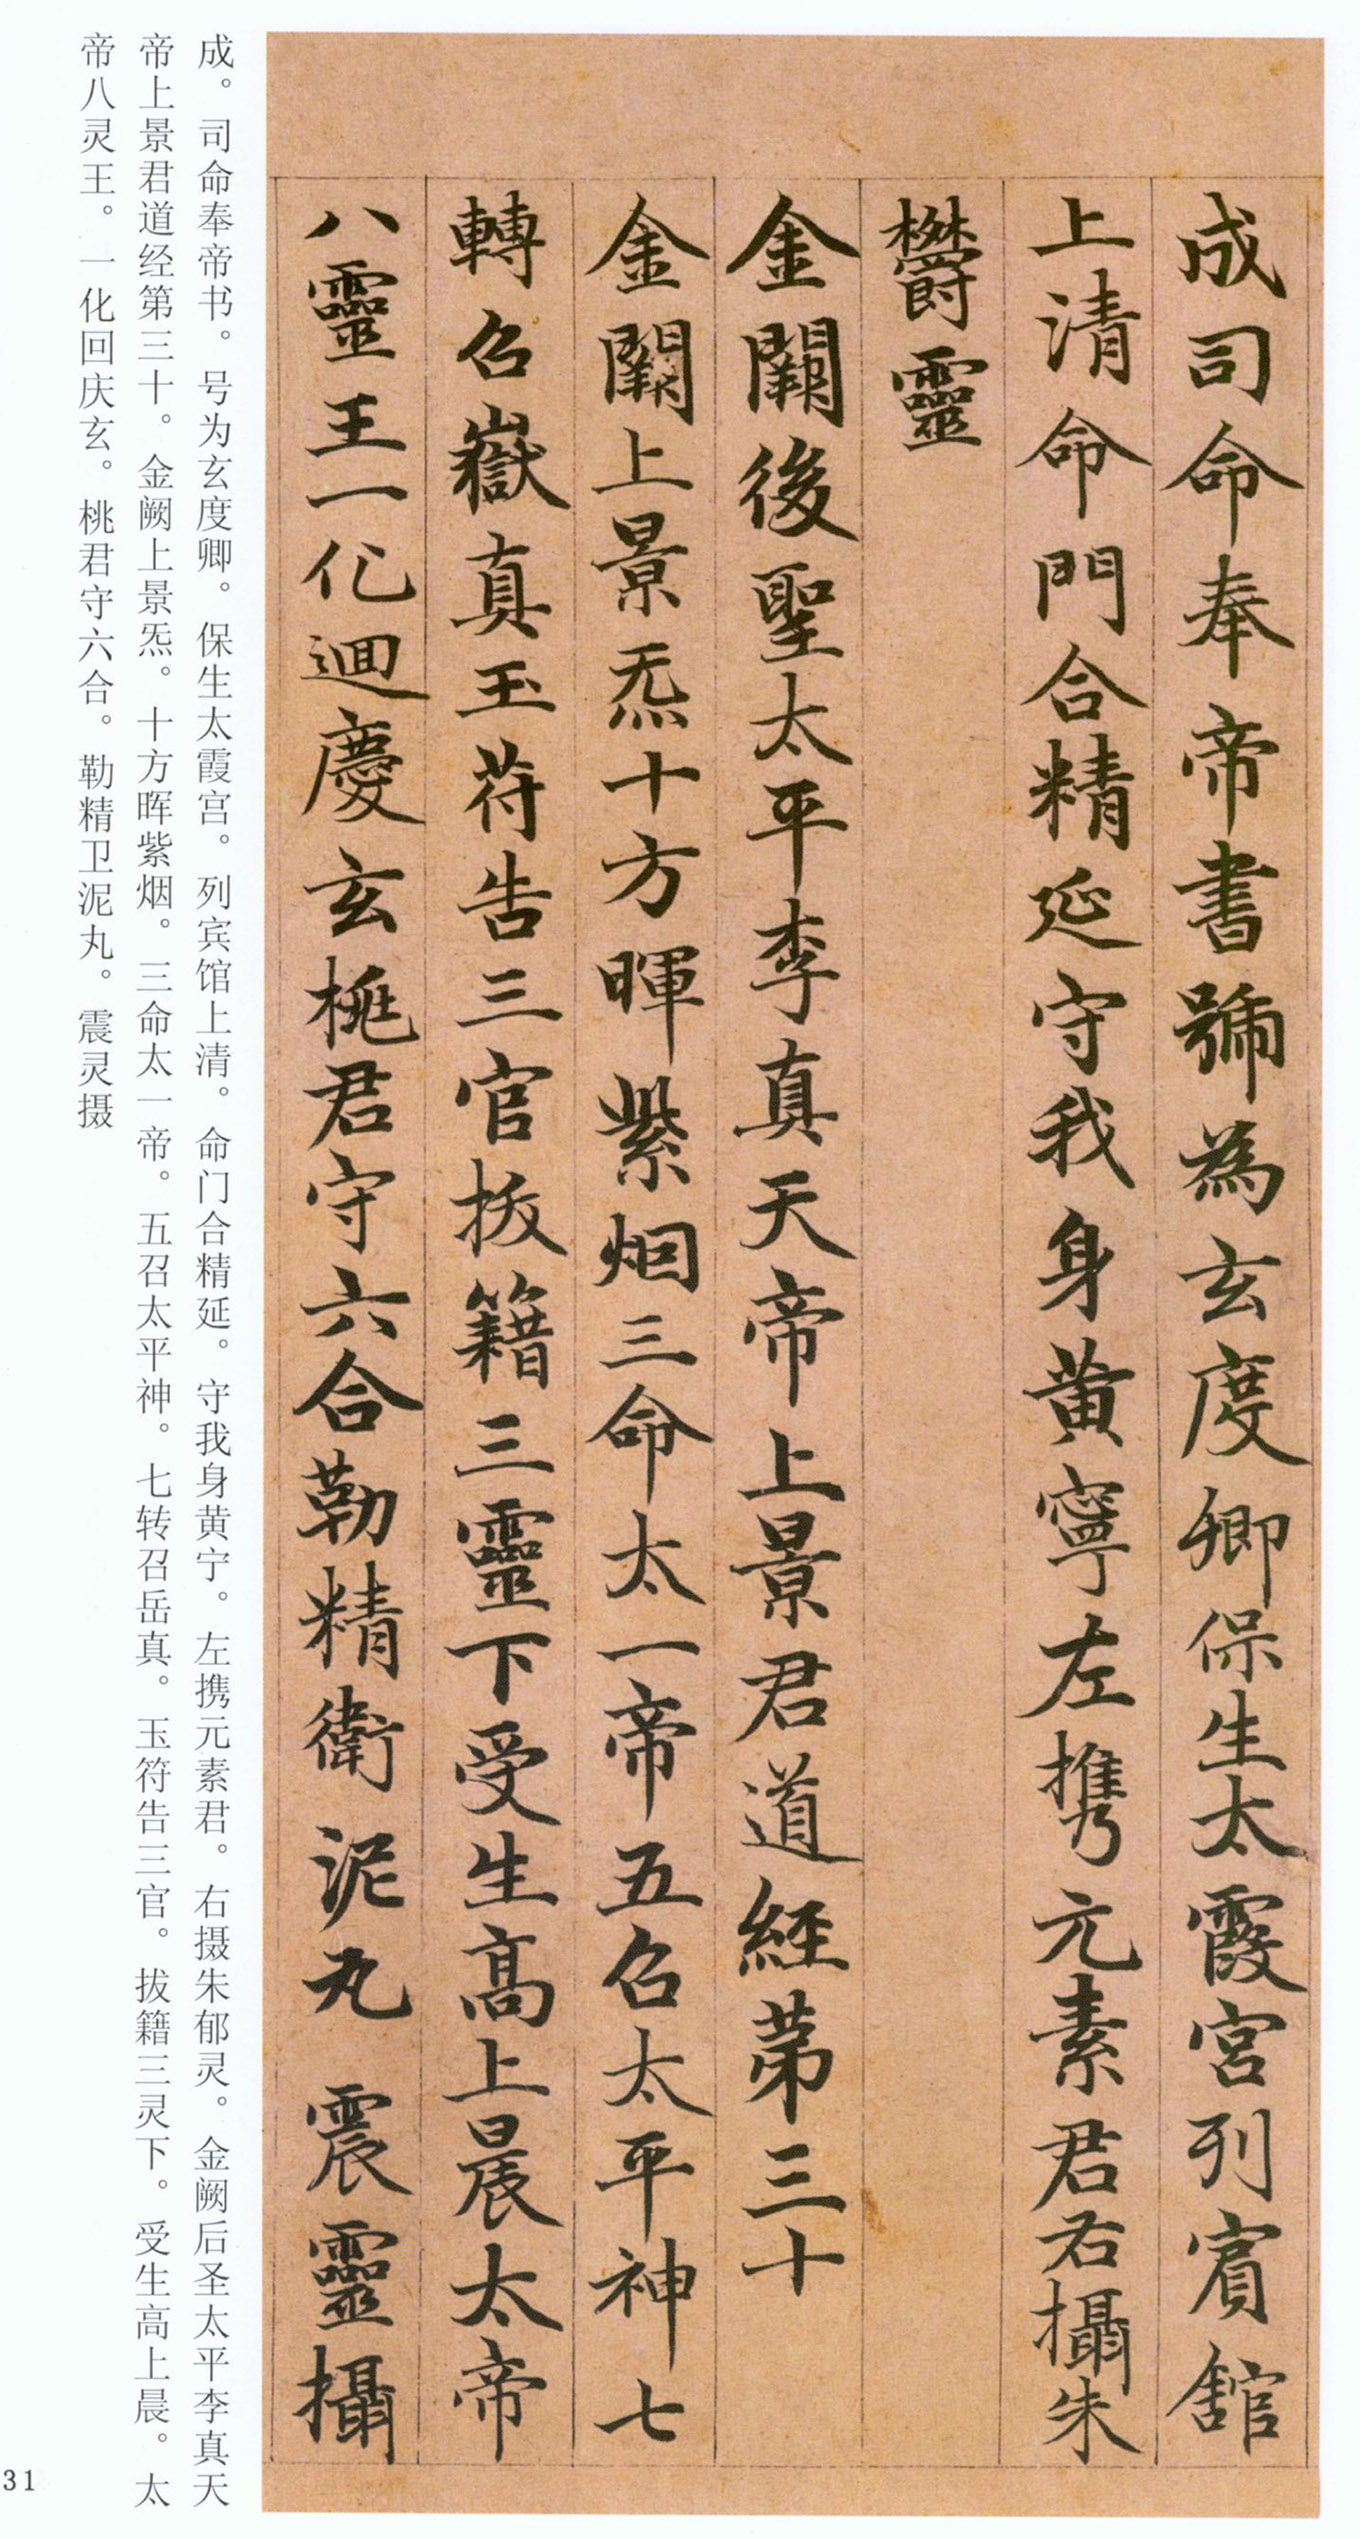 成司命奉帝書號為玄度卿保生太霞宮列賓館
上清命門合精延守我身黄寧左攜元素君右攝朱
欎靈
金闕後聖太平李真天帝上景君道經苐三十
金闕上景炁十方暉紫烟三命太一帝五召太平神七
轉召嶽真玉苻告三官拔籍三靈下受生高上晨太帝
八靈王一化迴慶玄桃君守六合勒精衛泥丸震靈攝
成。司命奉帝书。号为玄度卿。保生太霞宫。列宾馆上清。命门合精延。守我身黄宁。左携元素君。右摄朱郁灵。金阙后圣太平李真天
帝上景君道经第三十。金阙上景炁。十方晖紫烟。三命太一帝。五召太平神。七转召岳真。玉符告三官。拔籍三灵下。受生高上晨。太
帝八灵王。一化回庆玄。桃君守六合。勒精卫泥丸。震灵摄
31